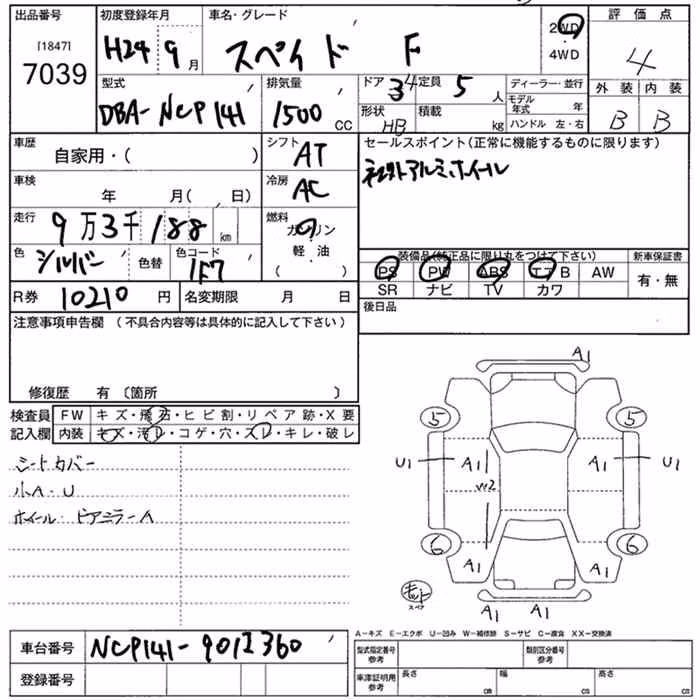 出品番号
[1847]
7039
初度登録年月
H24 9月
車名・グレード
スペイド F
2WD
4WD
評価点
4
外装 内装
B B
型式
DBA-NCP141
排気量
1500 CC
ドア
34
定員
5人
形状
HB
積載
kg
ディーラー・並行
モデル年式 年
ハンドル 左・右
車歴
自家用・( )
シフト
AT
セールスポイント(正常に機能するものに限ります)
社外アルミホイール
車検
年 月( 、日)
冷房
AC
走行
9万3千188km
燃料
ガソリン
軽・油
( )
色
シルバー
色替
色コード
1F7
装備品(純正品に限り丸をつけて下さい)
PS PW ABS エアB AW
SR ナビ TV カワ
新車保証書
有・無
R券 10210円
名変期限 月 日
後日品
注意事項申告欄 (不具合内容等は具体的に記入して下さい)
修復歴 有〔箇所 〕
検査員
記入欄
FW キズ・飛石・ヒビ割・リペア跡・X要
内装 キズ・汚レ・コゲ・穴・スレ・キレ・破レ
シートカバー
小A・U
ホイール・ドアミラーA
A1
5 5
U1 A1 A1 U1
W2
6 6
A1 A1
キット
スペア
A1 A1
A-キズ E-エクボ U-凹み W-補修跡 S-サビ C-腐食 XX-交換済
車台番号
NCP141-9012360
登録番号
型式指定番号
参考
類別区分番号
参考
車庫証明用
参考
長さ cm
幅 cm
高さ cm